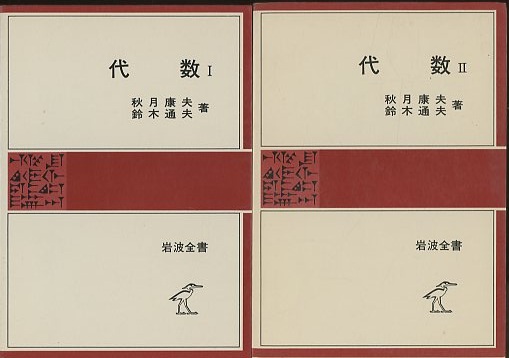 代数 I
秋月康夫
鈴木通夫 著
岩波全書
代数 II
秋月康夫
鈴木通夫 著
岩波全書